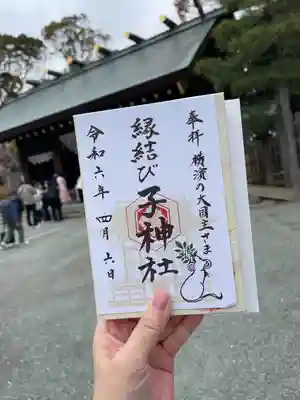 奉拝 横濱の大国主さま
縁結び
子神社
令和六年 四月 六日